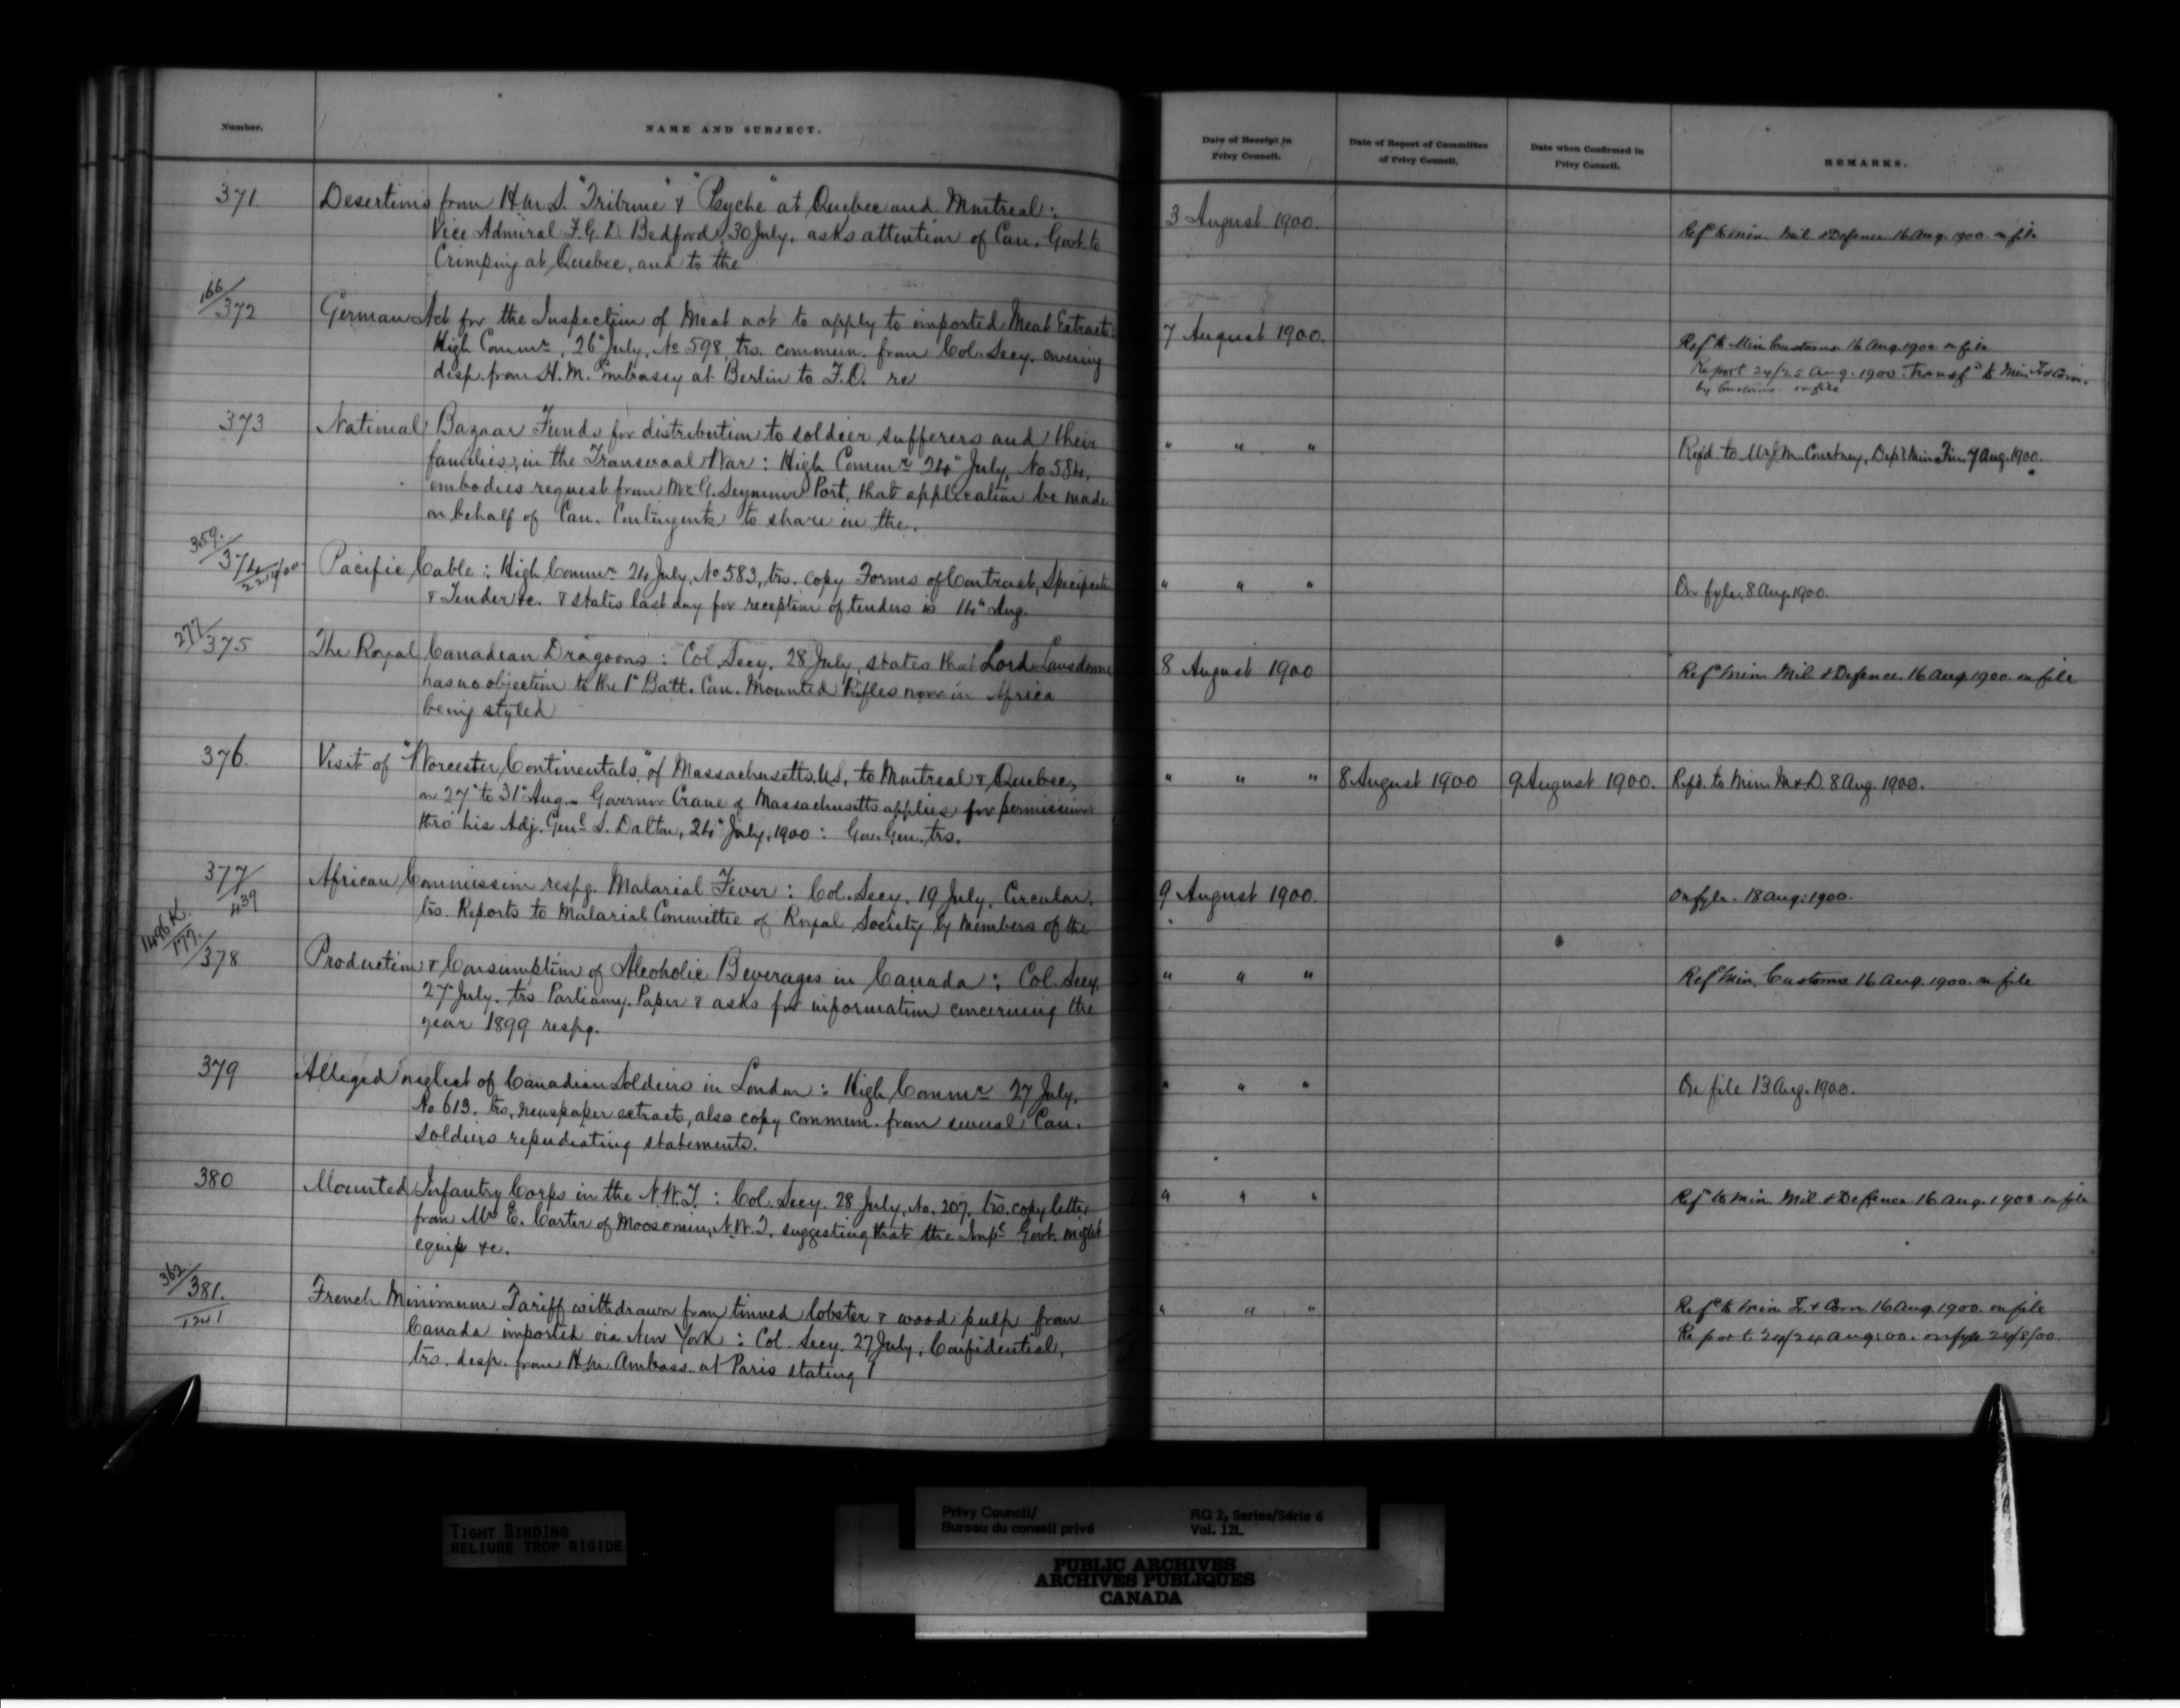 Number.
NAME AND SUBJECT.
Date of Receipt in
Privy Council.
Date of Report of Committee
of Privy Council.
Date when Confirmed in
Privy Council.
REMARKS.
371.
Desertions from H.M.S. "Tribune" & "Psyche" at Quebec and Montreal:
Vice Admiral F.G.D. Bedford, 30 July, asks attention of Can. Govt. to
Crimping at Quebec, and to the
3 August 1900.
Refd to Min. Mil. & Defence 16 Aug. 1900. on file
166/372
German Act for the Inspection of Meat not to apply to imported Meat Extracts:
High Commr., 26" July, No 598, trs. commun. from Col. Secy. covering
disp. from H.M. Embassy at Berlin to F.O. re
7 August 1900.
Refd to Min Customs 16 Aug. 1900 on file
Report 24/25 Aug. 1900. Transfd to Min Tr & Com.
by Customs on file
373
National Bazaar Funds for distribution to soldier sufferers and their
families, in the Transvaal War: High Commr 24" July, No 584,
embodies request from Mr G. Seymour Port, that application be made
on behalf of Can. Contingents to share in the.
" " "
Refd. to Mr J.M. Courtney, Dept Min Fin. 7 Aug. 1900.
359./374
2214/00
Pacific Cable: High Commr 24 July, No 583, trs. copy Forms of Contract, Specificatn
& Tender &c. & states last day for reception of tenders is 14" Aug.
" " "
On fyle, 8 Aug 1900.
277/375
The Royal Canadian Dragoons: Col. Secy. 28 July, states that Lord Lansdowne
has no objection to the 1st Batt. Can. Mounted Rifles now in Africa
being styled
8 August 1900
Refd Min Mil. & Defence. 16 Aug 1900. on file
376.
Visit of "Worcester Continentals," of Massachusetts, U.S. to Montreal & Quebec,
on 27" to 31" Aug. Governor Crane of Massachusetts applies for permission
thro' his Adj. Genl S. Dalton, 24" July, 1900: Gov. Gen. trs.
" " "
8 August 1900
9 August 1900.
Refd. to Min. M & D. 8 Aug. 1900.
377/439
African Commission respg. Malarial Fever: Col. Secy. 19 July. Circular.
trs. Reports to Malarial Committee of Royal Society by Members of the
9 August 1900.
On fyle. 18 Aug: 1900.
1496 K./177./378
Production & Consumption of Alcoholic Beverages in Canada: Col. Secy.
27 July. trs Parliamy. Paper & asks for information concerning the
year 1899 respg.
" " "
Refd Min. Customs 16 Aug. 1900. on file
379
Alleged neglect of Canadian Soldiers in London: High Commr 27 July,
No 613. trs. newspaper extracts, also copy commun. from several Can.
Soldiers repudiating statements.
" " "
On file 13 Aug. 1900.
380
Mounted Infantry Corps in the N.W.T.: Col. Secy. 28 July, No. 207, trs. copy letter
from Mr E. Carter of Moosomin, N.W.T. suggesting that the Impl Govt. might
equip &c.
" " "
Refd to Min Mil. & Defence 16 Aug. 1900. on file
362/381.
1241
French Minimum Tariff withdrawn from tinned lobster & wood pulp from
Canada imported via New York: Col. Secy. 27 July, Confidential,
trs. desp. from H.M. Ambass. at Paris stating
" " "
Refd to Min Tr. & Com. 16 Aug. 1900. on file
Report 24/24 Aug: 00. on fyle 24/8/00.
TIGHT BINDING
RELIURE TROP RIGIDE
Privy Council/
Bureau du conseil privé
RG 2, Series/Série 6
Vol. 121.
PUBLIC ARCHIVES
ARCHIVES PUBLIQUES
CANADA